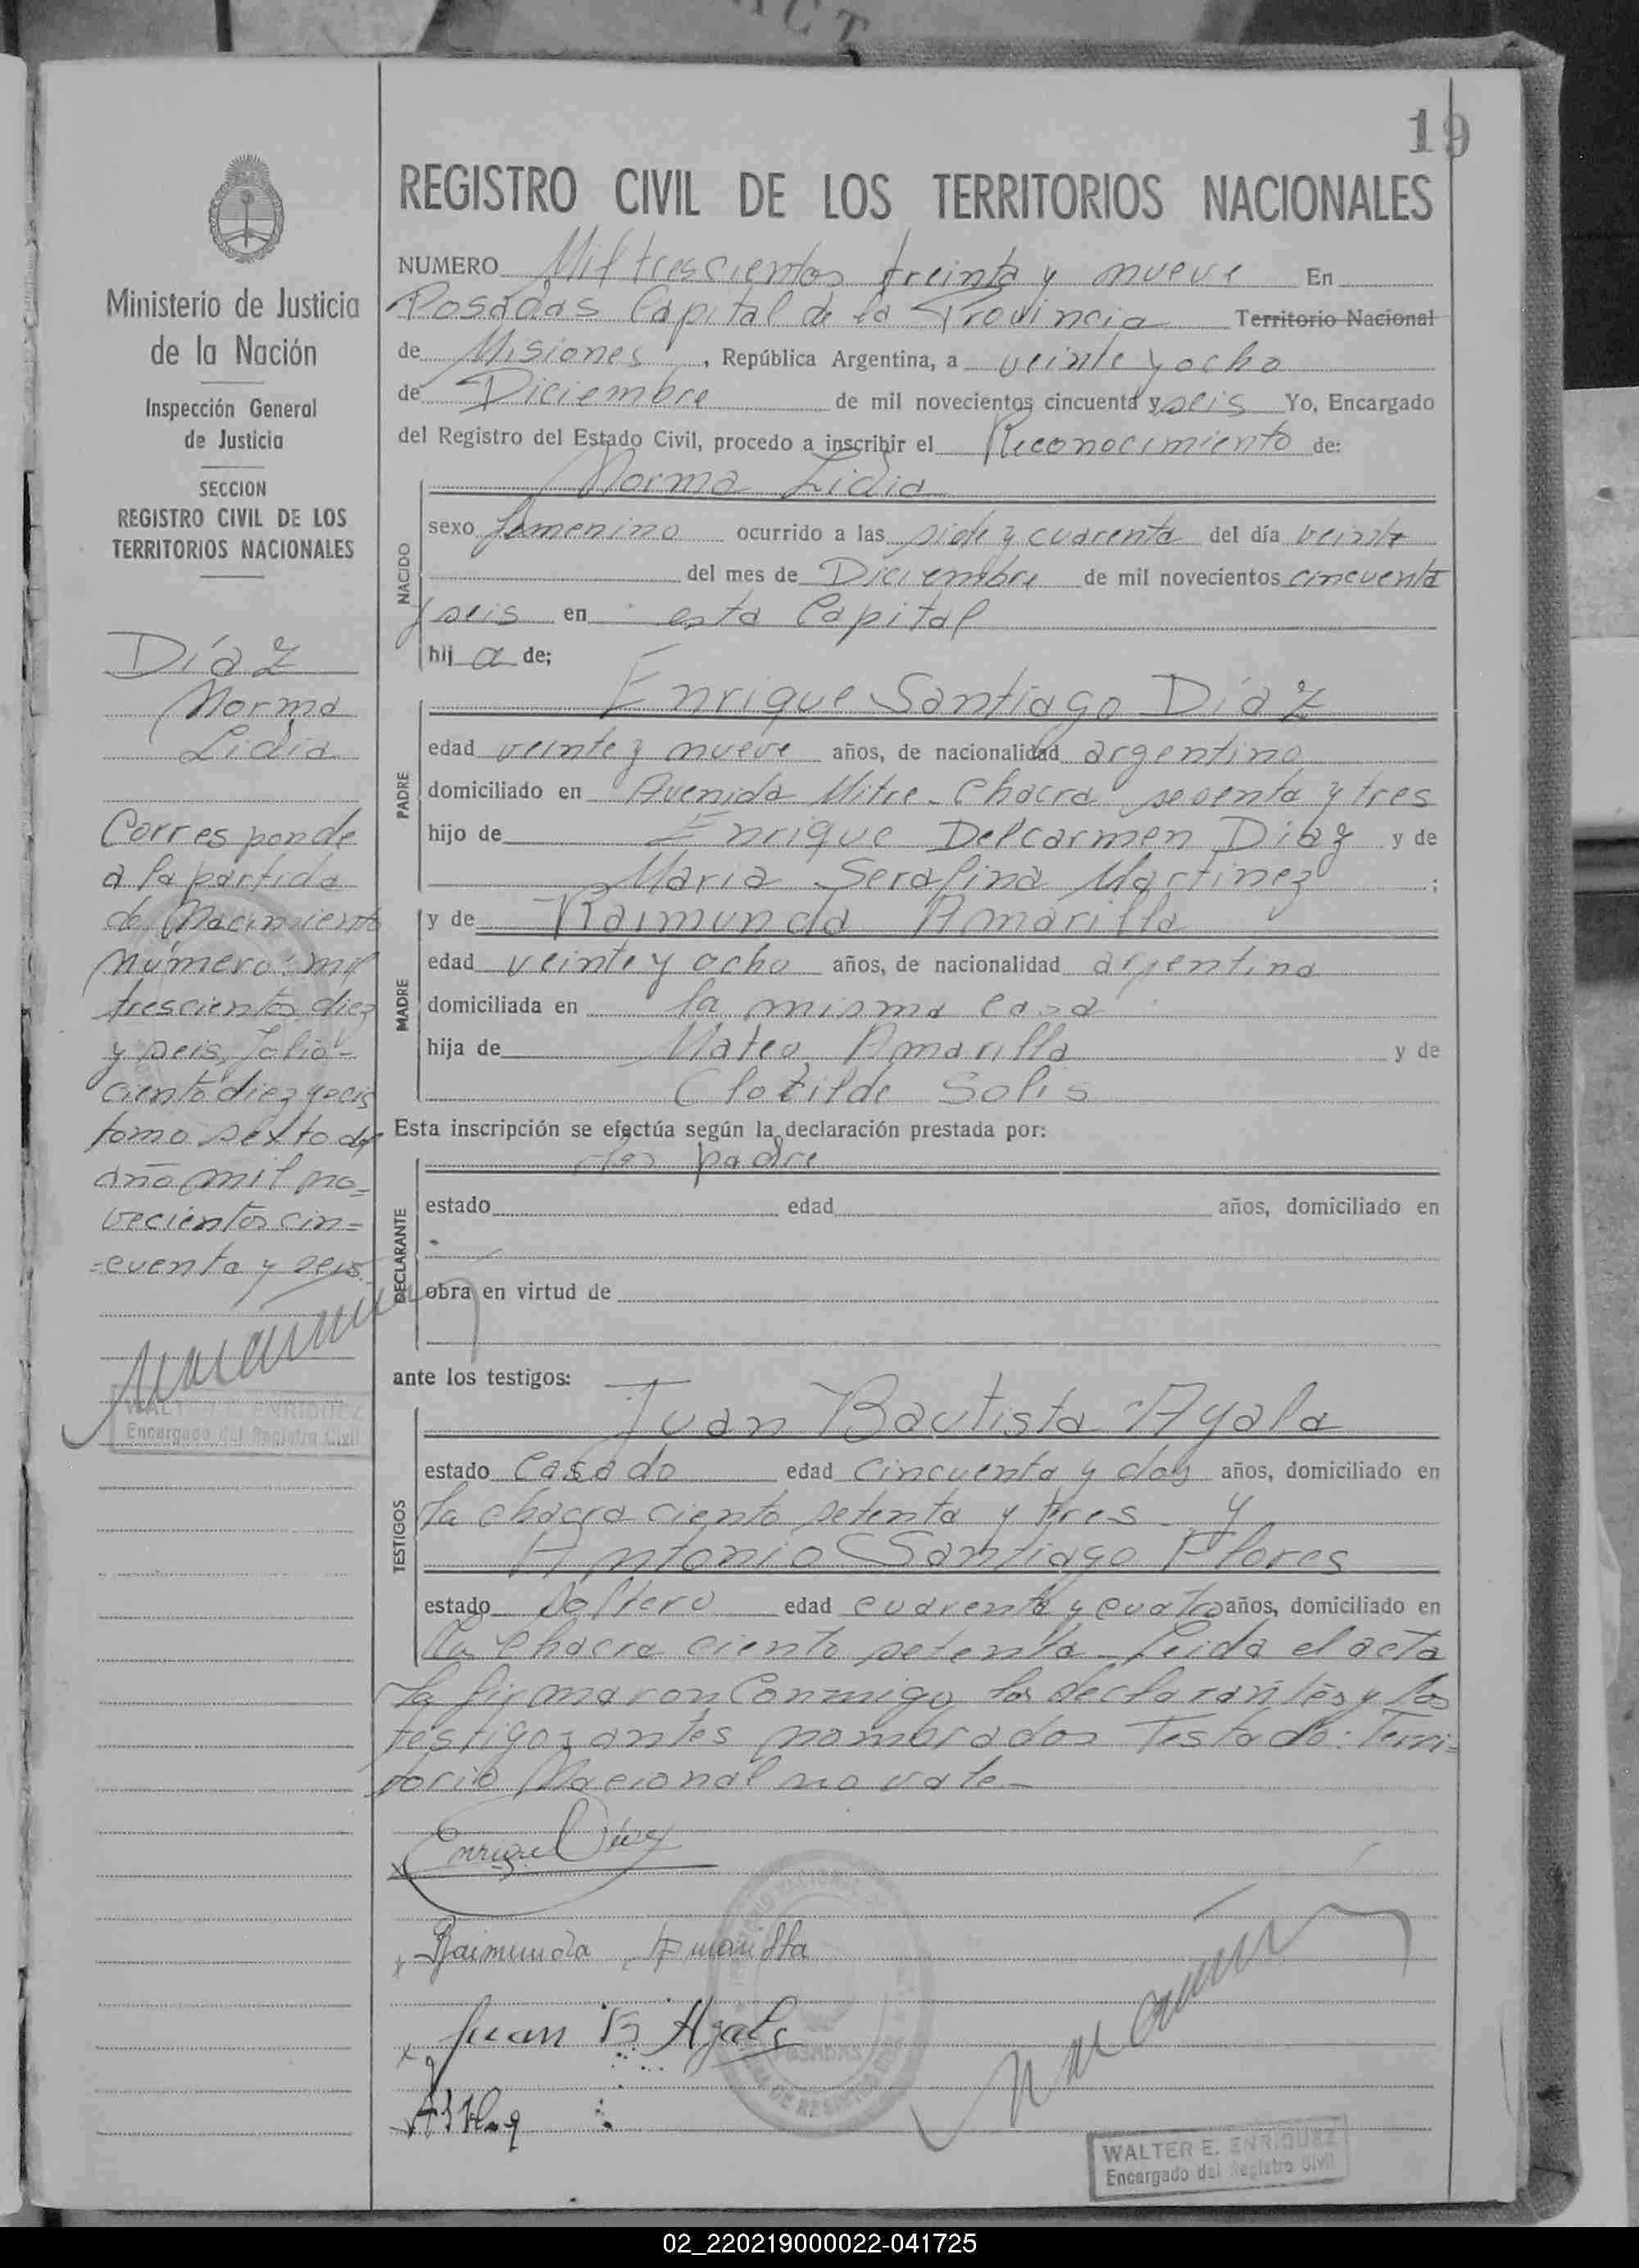 19
REGISTRO CIVIL DE LOS TERRITORIOS NACIONALES
Ministerio de Justicia
de la Nación
Inspección General
de Justicia
SECCION
REGISTRO CIVIL DE LOS
TERRITORIOS NACIONALES
Díaz
Norma
Lidia
Corresponde
a la partida
de Nacimiento
número: mil
trescientos diez
y seis, folio
ciento diez y seis
tomo sexto del
año mil no-
vecientos cin-
-cuenta y seis.
WALTER E. ENRIQUEZ
Encargado del Registro Civil
NUMERO Mil trescientos treinta y nueve En
Posadas Capital de la Provincia Territorio Nacional
de Misiones, República Argentina, a veinte y ocho
de Diciembre de mil novecientos cincuenta y seis Yo, Encargado
del Registro del Estado Civil, procedo a inscribir el Reconocimiento de:
NACIDO
Norma Lidia
sexo femenino ocurrido a las siete y cuarenta del día veinte
del mes de Diciembre de mil novecientos cincuenta
y seis en esta Capital
hij a de;
PADRE
Enrique Santiago Díaz
edad veinte y nueve años, de nacionalidad argentino
domiciliado en Avenida Mitre - Chacra sesenta y tres
hijo de Enrique Delcarmen Diaz y de
Maria Serafina Martinez ;
MADRE
y de Raimunda Amarilla
edad veinte y ocho años, de nacionalidad argentina
domiciliada en la misma casa
hija de Mateo Amarilla y de
Clotilde Solis
Esta inscripción se efectúa según la declaración prestada por:
DECLARANTE
los padre
estado edad años, domiciliado en
obra en virtud de
ante los testigos:
TESTIGOS
Juan Bautista Ayala
estado casado edad cincuenta y dos años, domiciliado en
la chacra ciento setenta y tres - y
Antonio Santiago Flores
estado soltero edad cuarenta y cuatro años, domiciliado en
la chacra ciento setenta - Leida el acta
la firmaron conmigo los declarantes y los
testigos antes nombrados Testado: Terri-
torio Nacional no vale -
Enrique Díaz
Raimunda Amarilla
Juan B Ayala
WALTER E. ENRIQUEZ
Encargado del Registro Civil
02_220219000022-041725